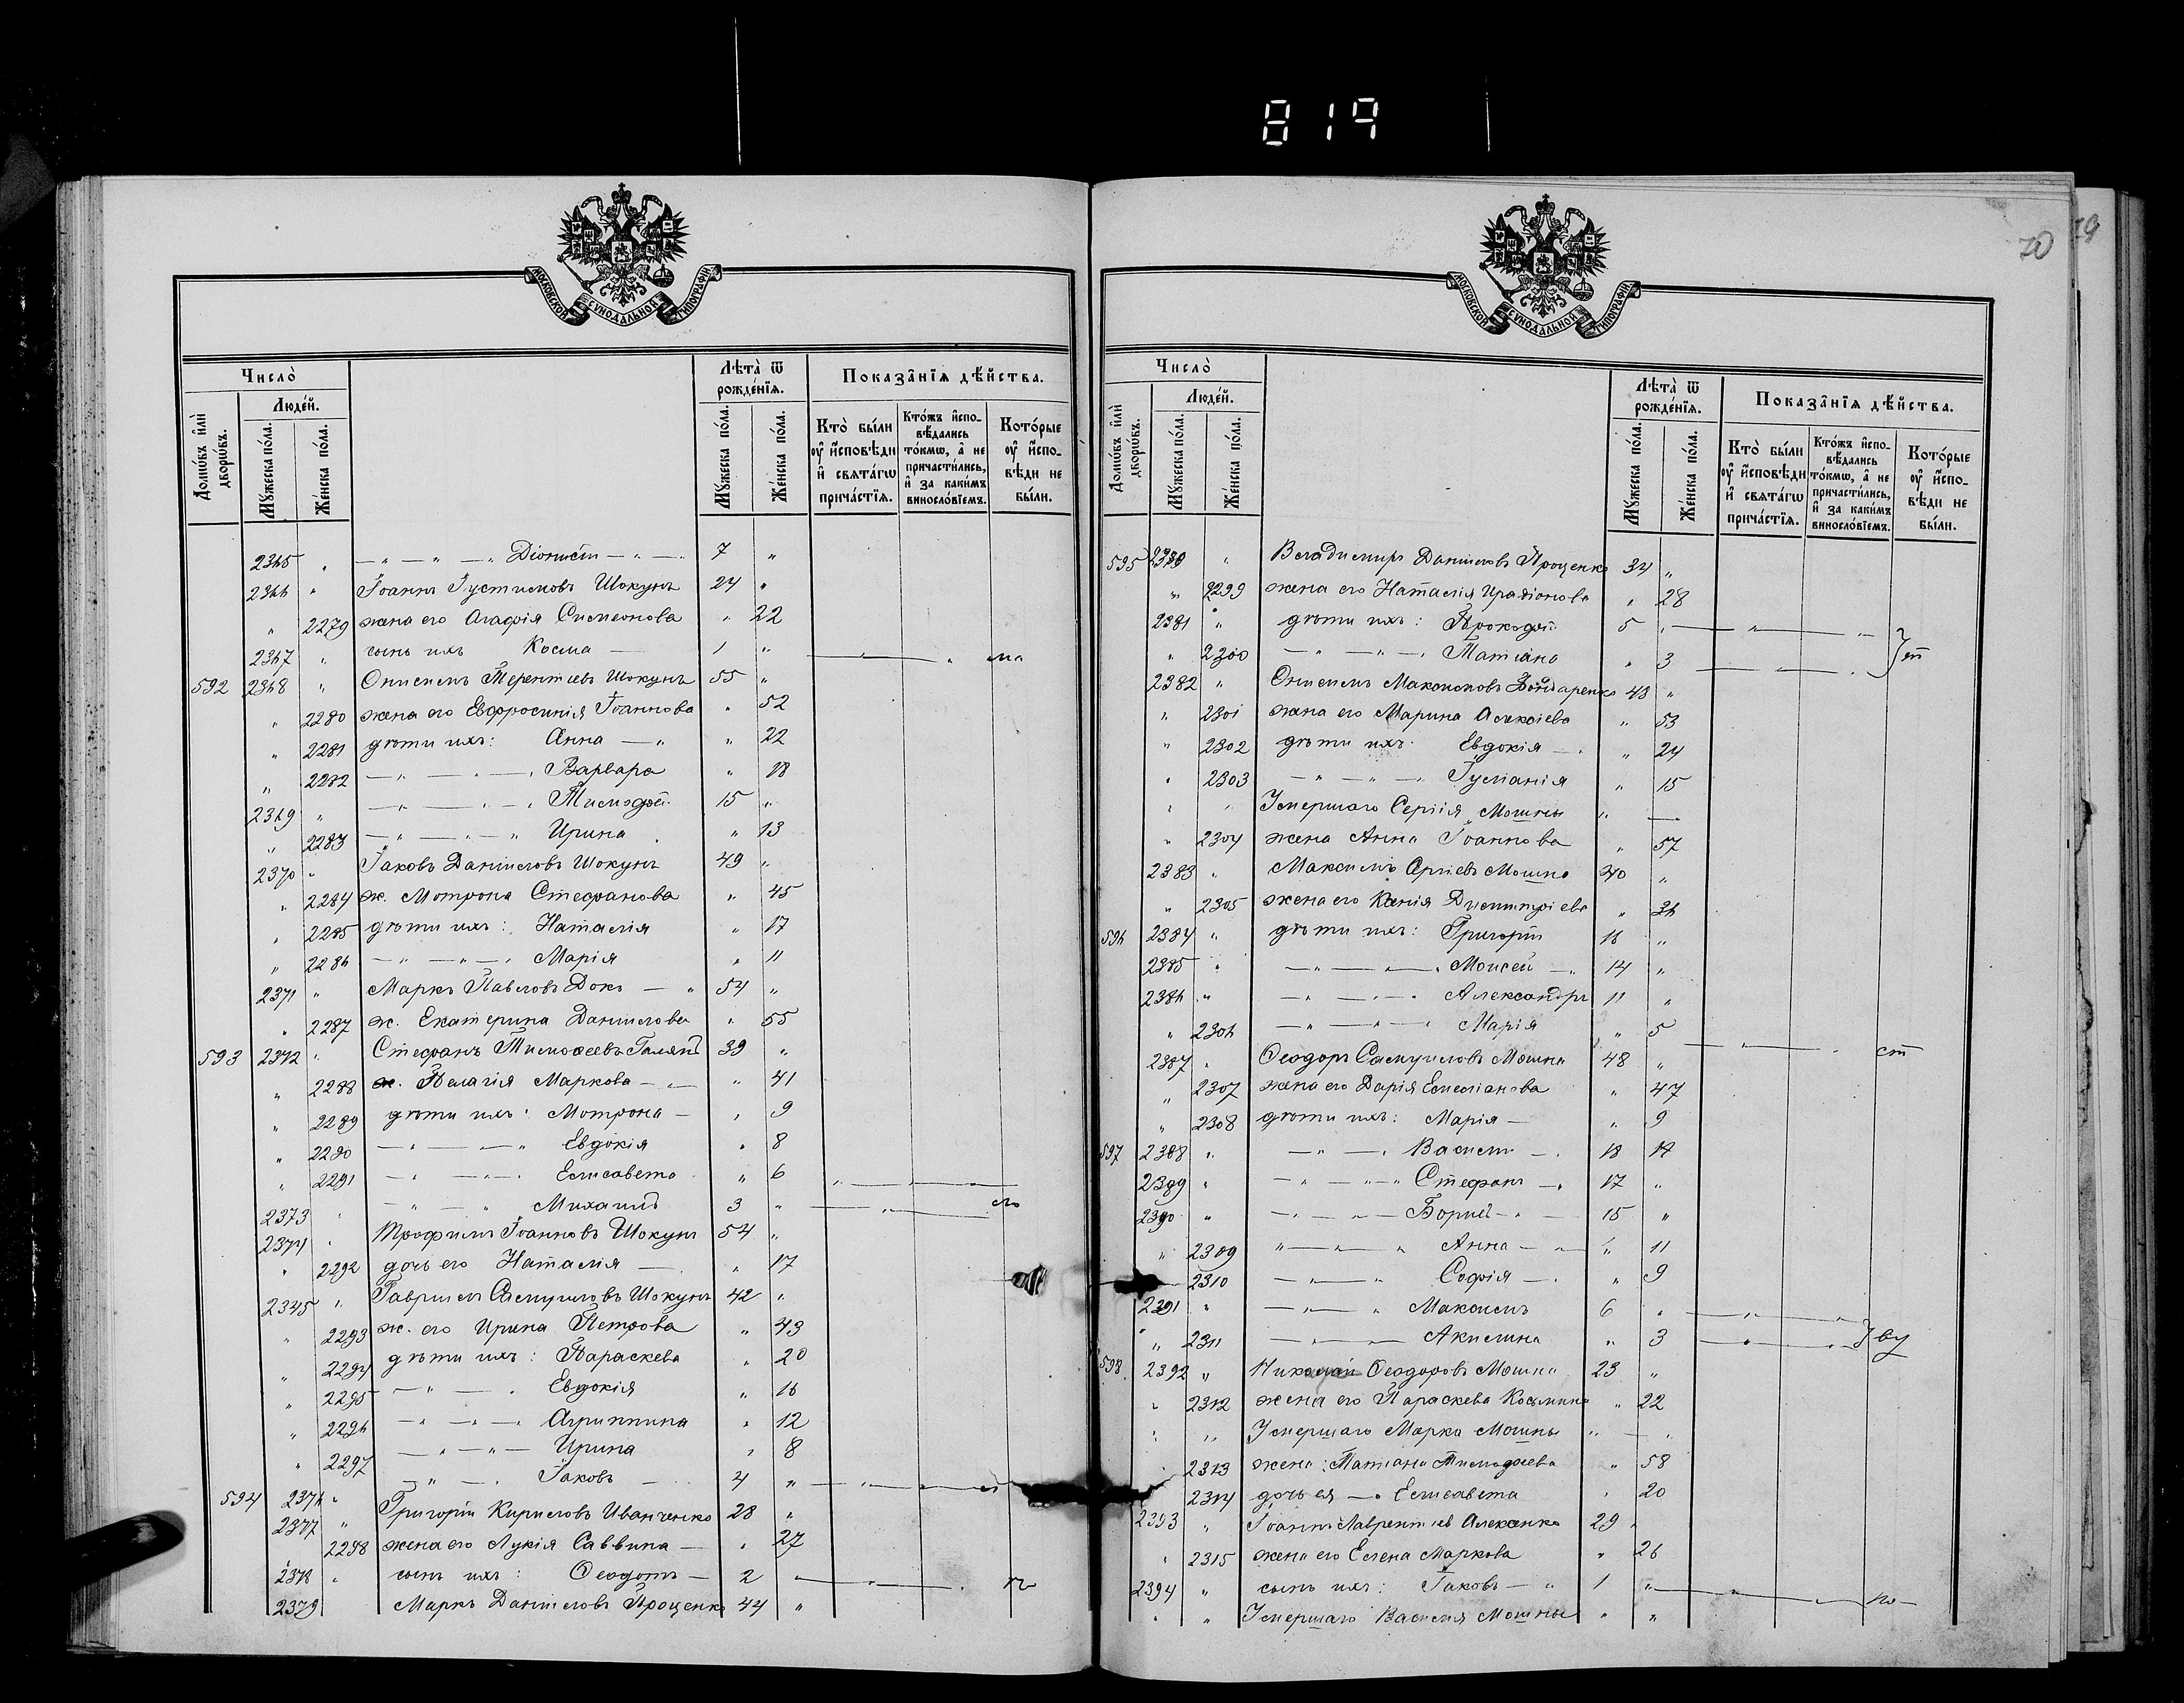 819
70
19
МОСКОВСКОЙ СУНОДАЛЬНОЙ ТИПОГРАФІИ
Число̀
Людéй.
Домѡ́въ и҆лѝ дворѡ́въ.
Мꙋ́жеска по́ла.
Же́нска по́ла.
Лѣта̀ ѿ рожде́нїѧ.
Мꙋ́жеска по́ла.
Же́нска по́ла.
Показа̑нїѧ дѣ́йства.
Кто̀ бы́ли ᲂу҆ и҆́сповѣди и҆ свѧта́гѡ прича́стїѧ.
Кто́жъ и҆спо-вѣ́дались то́кмѡ, а҆ не причасти́лись, и҆ за каки́мъ виносло́вїемъ.
Кото́рые ᲂу҆ и҆́спо-вѣди не бы́ли.
2365 " — " — " — " Діонисій — " — 7 "
2366 " Іоаннъ Іустиновъ Шокунъ 24 "
" 2279 жена его Агафія Симеонова " 22
2367 " сынъ ихъ Косма — 1 "
592 2368 " Онисимъ Терентіевъ Шокунъ 55 "
" 2280 жена его Евфросинія Іоаннова " 52
" 2281 дѣти ихъ: Анна — " " 22
" 2282 — " — " — " Варвара " 18
2369 " — " — " — " Тимофей 15 "
" 2283 — " — " — " Ирина " 13
2370 " Іаковъ Даніиловъ Шокунъ 49 "
" 2284 ж. Мотрона Стефанова " 45
" 2285 дѣти ихъ: Наталія " 17
" 2286 — " — " — " Марія " 11
2371 " Маркъ Павловъ Докъ — " 54 "
" 2287 ж. Екатерина Даніилова " 55
593 2372 " Стефанъ Тимоѳеевъ 39 "
" 2288 ж. Пелагія Маркова — " — " 41
" 2289 дѣти ихъ: Мотрона — " 9
" 2290 — " — " Евдокія " 8
" 2291 — " — " — " Елисавета " 6
2373 " — " — " Михаилъ 3 "
2374 " Трофимъ Іоанновъ Шокунъ 54 "
" 2292 дочь его Наталія — " 17
2345 " Гавріилъ Самуиловъ Шокунъ 42 "
" 2293 ж. его Ирина Петрова " 43
" 2294 дѣти ихъ: Параскева " 20
" 2295 — " — " Евдокія " 16
" 2296 — " — " — " Агриппина " 12
" 2297 — " — " — Ирина " 8
594 2376 " — " — " Іаковъ — 4 "
2377 " Григорій Кириловъ Иванченко 28 "
2298 жена его Лукія Саввина — " 27
2378 " сынъ ихъ: Ѳеодотъ — 2 "
2379 Маркъ Даніиловъ Проценко 44 "
МОСКОВСКОЙ СУНОДАЛЬНОЙ ТИПОГРАФІИ
Число̀
Людéй.
Домѡ́въ и҆лѝ дворѡ́въ.
Мꙋ́жеска по́ла.
Же́нска по́ла.
Лѣта̀ ѿ рожде́нїѧ.
Мꙋ́жеска по́ла.
Же́нска по́ла.
Показа̑нїѧ дѣ́йства.
Кто̀ бы́ли ᲂу҆ и҆́сповѣди и҆ свѧта́гѡ прича́стїѧ.
Кто́жъ и҆спо-вѣ́дались то́кмѡ, а҆ не причасти́лись, и҆ за каки́мъ виносло́вїемъ.
Кото́рые ᲂу҆ и҆́спо-вѣди не бы́ли.
595 2380 " Владимиръ Даніиловъ Проценко 34 "
" 2299 жена его Наталія Ирадіонова " 28
2381 " дѣти ихъ: Прокофій 5 "
" 2300 — " — " — " Татіана " 3
2382 " Онисимъ Максимовъ Бондаренко 43 "
" 2301 жена его Марина Алексіева " 53
" 2302 дѣти ихъ: Евдокія — " " 24
" 2303 — " — " — " Гуліанія " 15
" " Умершаго Сергія Мошны " —
" 2304 жена Анна Іоаннова " 57
2383 " Максимъ Сргіевъ Мошна 40 "
" 2305 жена его Ксенія Димитріева " 36
596 2384 " дѣти ихъ: Григорій 16 "
2385 " — " — " — " Моисей — " 14 "
2386 " — " — " — " Александръ 11 "
" 2306 — " — " — " Марія " 5
2387 " Ѳеодоръ Самуиловъ Мошна 48 "
" 2307 жена его Дарія Емеліанова " 47
" 2308 дѣти ихъ: Марія — " 9
597 2388 " — " — " Василій — " 18
2389 " — " — " — " Стефанъ — " 17 "
2390 " — " — " — Борисъ — " — 15 "
" 2309 " — " — " Анна — " — " 11
2310 — " — " Софія — " " 9
2391 " — " — " Максимъ 6 "
" 2311 — " — " — Акилина " 3
598 2392 " Николай Ѳеодоровъ Мошна 23 "
" 2312 жена его Параскева Космина " 22
" " Умершаго Марка Мошны " — "
2313 жена: Татіана Тимофеева " 58
2314 дочь ея — " Елисавета " 20
2393 " Іоаннъ Лаврентіев Алексенко 29 "
" 2315 жена его Елена Маркова " 26
2394 " сынъ ихъ: Іаковъ — " 1 "
" " Умершаго Василія Мошны " "